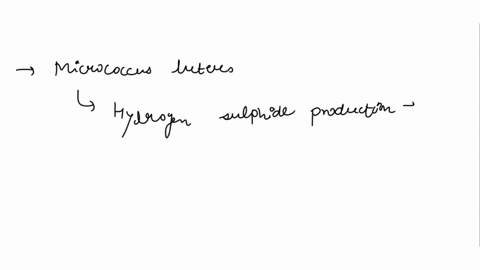 → Micrococcus luteus
↳ Hydrogen sulphide production →